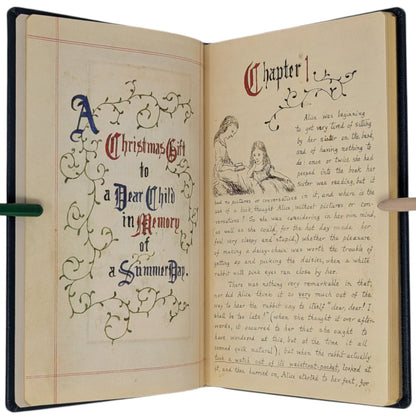 A
Christmas Gift
to
a Dear Child
in Memory
of
a Summer Day.
Chapter 1
Alice was beginning
to get very tired of sitting
by her sister on the bank,
and of having nothing to
do: once or twice she had
peeped into the book her
sister was reading, but it
had no pictures or conversations in it, and where is the
use of a book, thought Alice, without pictures or con-
versations? So she was considering in her own mind,
(as well as she could, for the hot day made her
feel very sleepy and stupid,) whether the pleasure
of making a daisy-chain was worth the trouble of
getting up and picking the daisies, when a white
rabbit with pink eyes ran close by her.
There was nothing very remarkable in that,
nor did Alice think it so very much out of the
way to hear the rabbit say to itself "dear, dear! I
shall be too late!" (when she thought it over after-
wards, it occurred to her that she ought to
have wondered at this, but at the time it all
seemed quite natural); but when the rabbit actually
took a watch out of its waistcoat-pocket, looked at
it, and then hurried on, Alice started to her feet, for